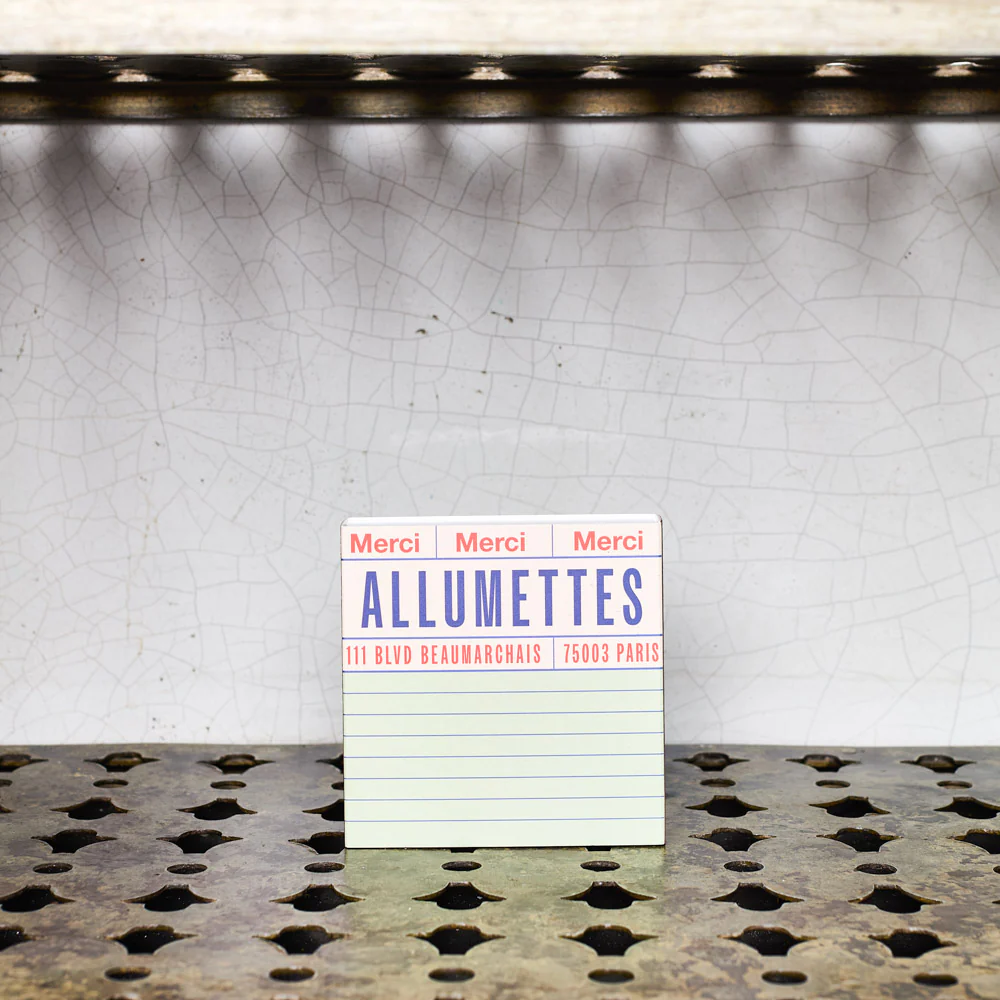 Merci Merci Merci
ALLUMETTES
111 BLVD BEAUMARCHAIS 75003 PARIS